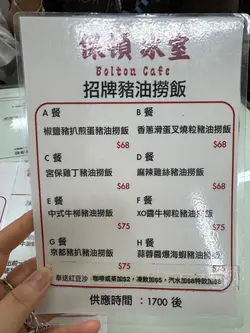 保頓冰室
Bolton Cafe
招牌豬油撈飯
A 餐
椒鹽豬扒煎蛋豬油撈飯
$68
B 餐
香蔥滑蛋叉燒粒豬油撈飯
$68
C 餐
宮保雞丁豬油撈飯
$68
D 餐
麻辣雞絲豬油撈飯
$68
E 餐
中式牛柳豬油撈飯
$75
F 餐
XO醬牛柳粒豬油撈飯
$75
G 餐
京都豬扒豬油撈飯
$75
H 餐
蒜蓉醬爆海蝦豬油撈飯
奉送紅豆沙
咖啡或茶加$2，凍飲加$5，汽水加$8特飲加$8
供應時間：1700 後